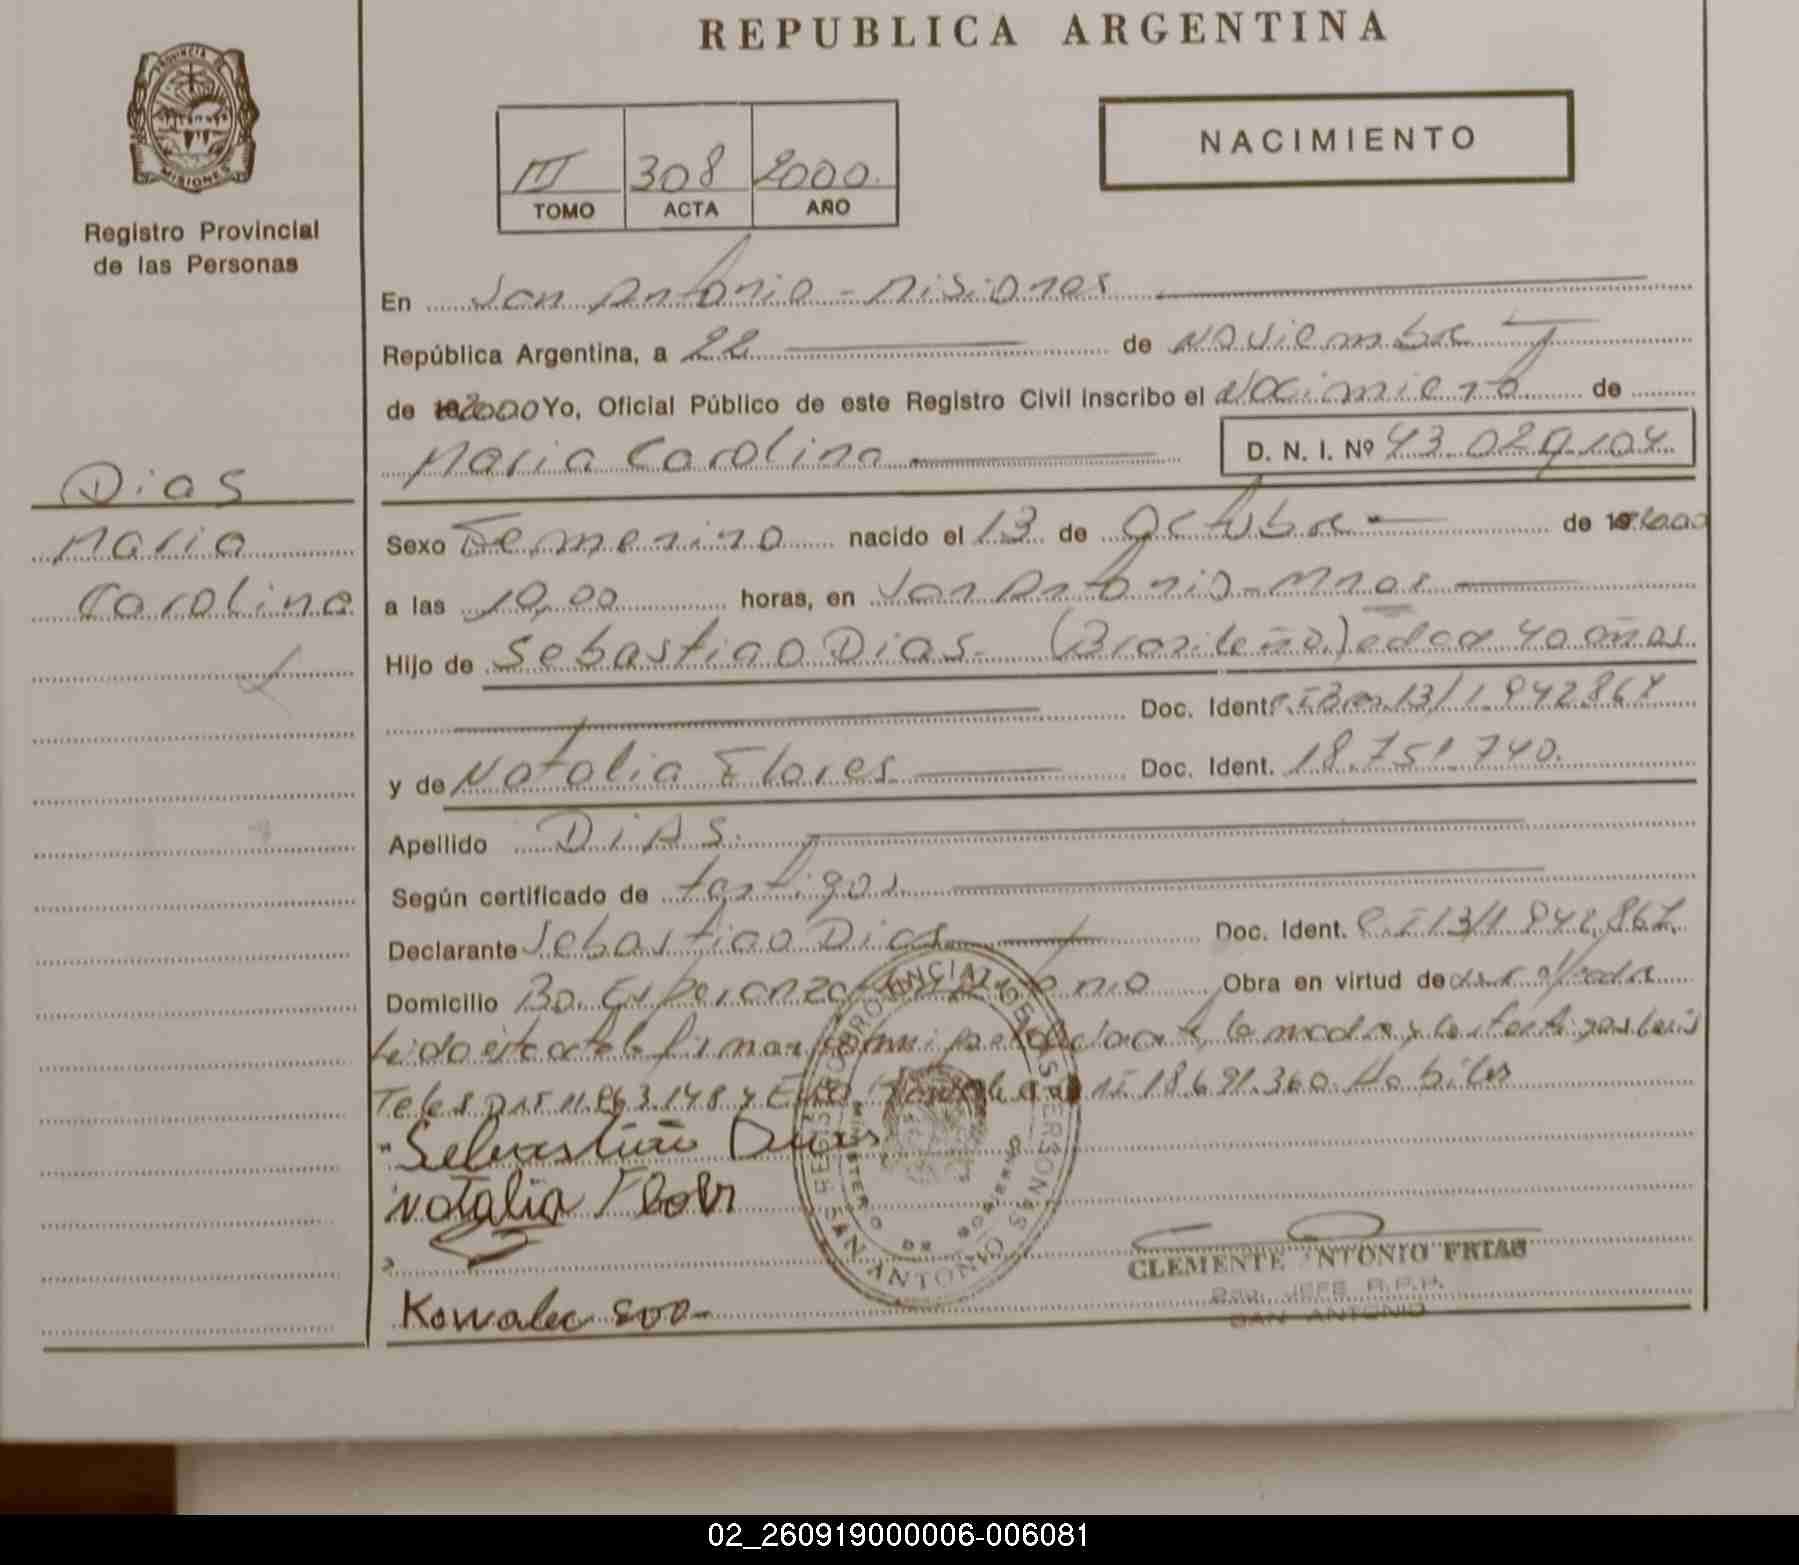 REPUBLICA ARGENTINA
PROVINCIA DE
MISIONES
Registro Provincial
de las Personas
III 308 2000.
TOMO ACTA AÑO
NACIMIENTO
En San Antonio - Misiones
República Argentina, a 22 de Noviembre
de 2000 Yo, Oficial Público de este Registro Civil inscribo el Nacimiento de
Maria Carolina D. N. I. Nº 43.029.104.
Dias
Maria
Carolina
Sexo Femenino nacido el 13 de Octubre de 2000
a las 10,00 horas, en San Antonio - Mnes
Hijo de Sebastiao Dias - (Brasileño) edad 40 años.
Doc. Ident. 13/1.942.867
y de Natalia Flores Doc. Ident. 18.751.740.
Apellido DiAS.
Según certificado de testigos
Declarante Sebastiao Dias Doc. Ident. C.I 13/1.942.867.
Domicilio Bo. Esperanza Obra en virtud de
Leido el acta la firman la madre y los testigos
18.691.360. Habiles
Sebastião Dias
Natalia Flores
Kowalec
REGISTRO PROVINCIAL DE LAS PERSONAS
MINISTERIO DE GOBIERNO
SAN ANTONIO
CLEMENTE ANTONIO FRIAS
JEFE R.P.P.
SAN ANTONIO
02_260919000006-006081